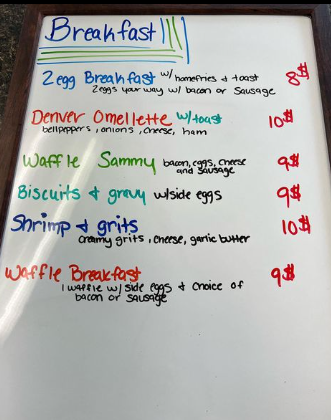 Breakfast
2 egg Breakfast w/homefries & toast 8$
2 eggs your way w/ bacon or sausage
Denver Omellette w/toast 10$
bellpeppers, onions, cheese, ham
Waffle Sammy bacon, eggs, cheese 9$
and sausage
Biscuits & gravy w/side eggs 9$
Shrimp & grits 10$
creamy grits, cheese, garlic butter
Waffle Breakfast 9$
1 waffle w/ side eggs & choice of
bacon or sausage